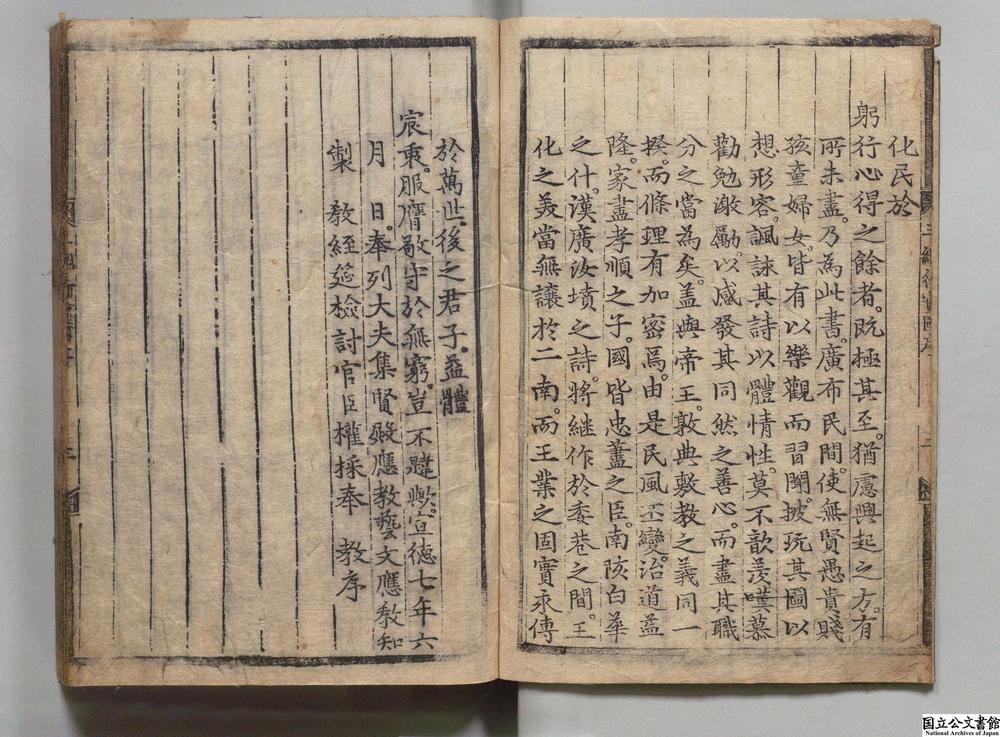 化民於
躬行心得之餘者。既極其至。猶慮興起之方。有
所未盡。乃爲此書。廣布民間。使無賢愚貴賤
孩童婦女。皆有以樂觀而習聞。披玩其圖。以
想形容。諷詠其詩。以體情性。莫不歆羨嘆慕
勸勉激勵。以感發其同然之善心。而盡其職
分之當為矣。盖與帝王。敦典敷教之義。同一
揆。而條理有加密焉。由是民風丕變。治道益
隆。家盡孝順之子。國皆忠藎之臣。南陔白華
之什。漢廣汝墳之詩。將継作於委巷之間。王
化之美。當無讓於二南。而王業之固。實永傳
於萬世。後之君子。益體
宸衷。服膺敬守於無窮。豈不韙歟。宣德七年六
月 日。奉列大夫集賢殿應教藝文應教知
製 教經筵檢討官臣權採奉 教序
三綱行實圖序
三
国立公文書館
National Archives of Japan